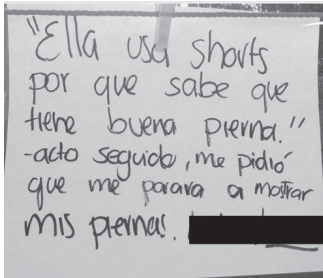 "Ella usa shorts
por que sabe que
tiene buena pierna."
-acto seguido, me pidió
que me parara a mostrar
mis piernas.